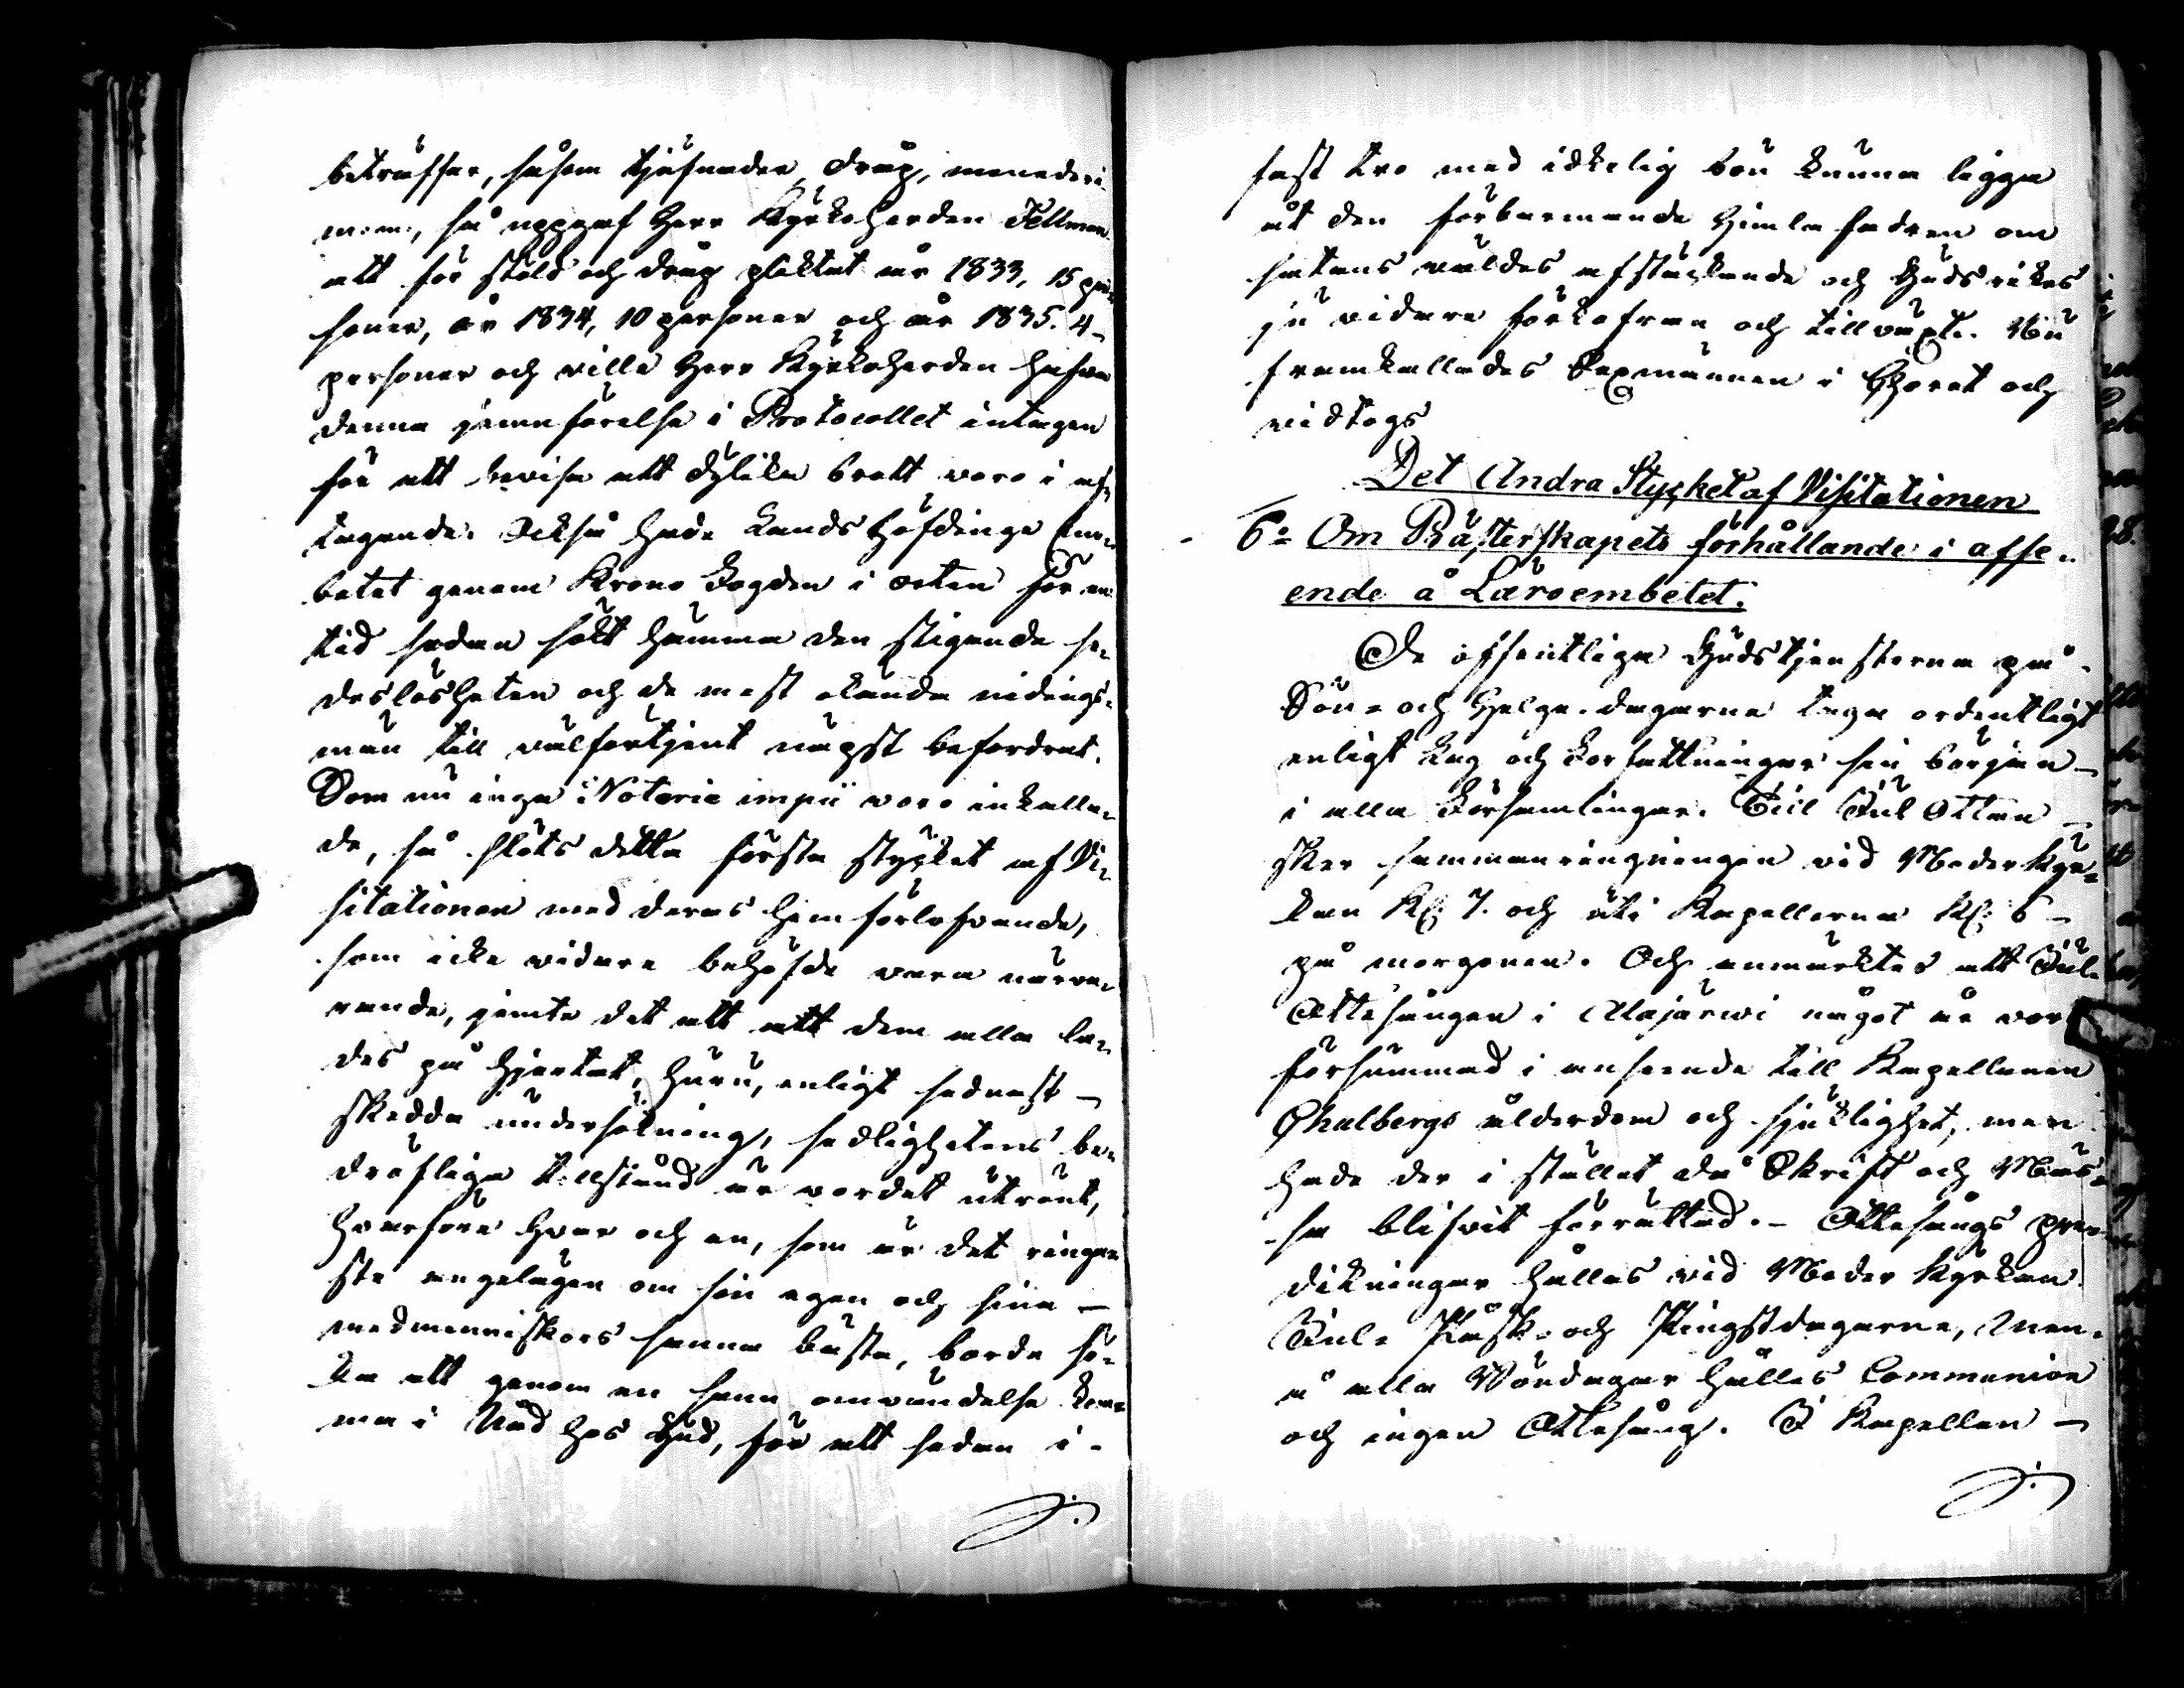 beträffar, såsom tjufnader, dråp, menederi
m: m:, så uppgaf Herr Kyrkoherden Fellman
att för stöld och dråp pliktat år 1833, 15 per-
soner, år 1834, 10 personer och år 1835. 4-
personer och ville Herr Kyrkoherden hafva
denna jemnförelse i Protocollet intagen
för att bevisa att dylika brott voro i af-
tagande. Också hade Landshöfdinge Em-
betet genom Krono Fogden i orten för en
tid sedan sökt hämma den stigande se-
deslösheten och de mest okända nidings-
män till välförtjent näpst befordrat.
Som nu inga Notorie impii voro inkalla-
de, så slöts detta första stycket af Vi-
sitationen med deras hemförlofvande,
som icke vidare behöfde vara närva-
rande, jemte det att att dem alla la-
des på hjertat, huru, enligt sednast –
skedda undersökning, sedlighetens be-
dröfliga tillstånd är vordet utrönt,
hvarföre hvar och en, som är det ringa-
ste angelägen om sin egen och sina –
medmenniskors sanna bästa, borde sö-
ka att genom en sann omvändelse kom-
ma i Nåd hos Gud, för att sedan i -
fast tro med idkelig bön kunna ligga
åt den förbarmande Himla fadren om
satans väldes afstäckande och Guds rikes
ju vidare förkofran och tillväxt. Nu
framkallades Sexmännen i Choret och
vidtogs
Det Andra Stycket af Visitationen
6º Om Prästerskapets förhållande i afse-
ende å Läroembetet.
De offentliga Gudstjensterna på -
Sön- och Helge-dagarna taga ordentligt
enligt Lag och Författningar sin början –
i alla Församlingar. Till Jul Ottan –
sker sammanringningen vid Moderkyr-
kan Kl: 7. och uti Kapellerna Kl: 6 –
på morgonen. Och anmärktes att Jul-
Ottesången i Alajärwi något år var
försummad i anseende till Kapellanen
Chalbergs ålderdom och sjuklighet, men
hade der i stället då Skrift och Mäs-
sa blifvit förrättad. – Ottesångs pre-
dikningar hållas vid Moder Kyrkan
Jul- Påsk- och Pingstdagarne, men
å alla Söndagar hålles Communion
och ingen Ottesång. I Kapellen –